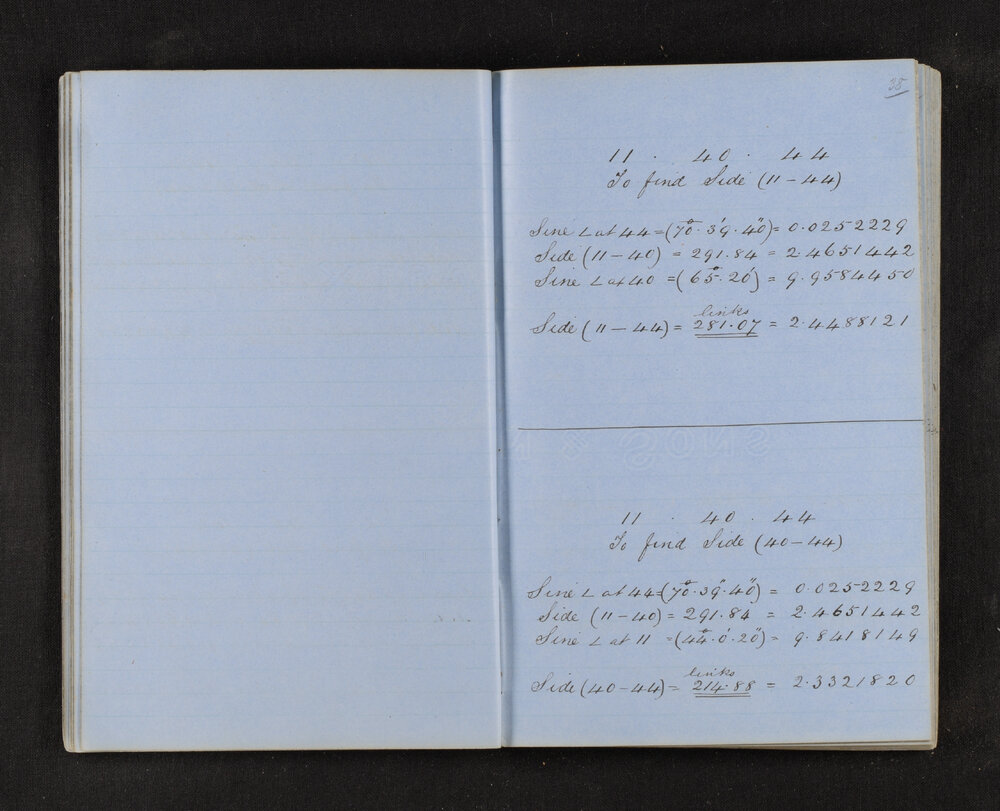 38
11 . 40 . 44
To find Side (11 – 44)
Sine ∠ at 44 = (70°. 39'. 40") = 0.0252229
Side (11 – 40) = 291.84 = 2.4651442
Sine ∠ at 40 = (65°. 20') = 9.9584450
links
Side (11 – 44) = 281.07 = 2.4488121
11 . 40 . 44
To find Side (40 – 44)
Sine ∠ at 44 = (70°. 39". 40") = 0.0252229
Side (11 – 40) = 291.84 = 2.4651442
Sine ∠ at 11 = (44°. 0'. 20") = 9.8418149
links
Side (40 – 44) = 214.88 = 2.3321820